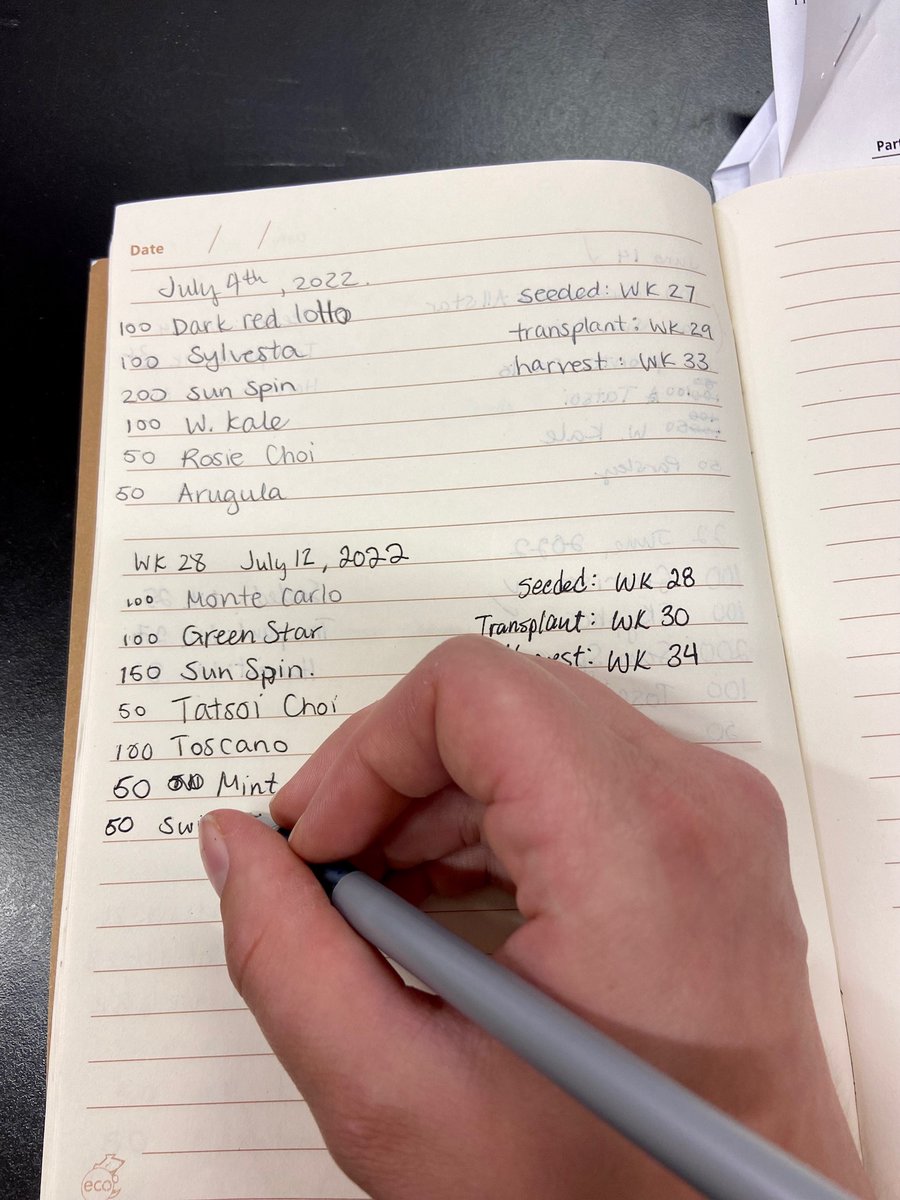 Part
Date / /
July 4th, 2022.
100 Dark red lotto seeded: WK 27
100 Sylvesta transplant: WK 29
200 sun spin harvest: WK 33
100 W. Kale
50 Rosie Choi
50 Arugula
WK 28 July 12, 2022
100 Monte Carlo Seeded: WK 28
100 Green Star Transplant: WK 30
150 Sun Spin. WK 34
50 Tatsoi Choi
100 Toscano
50 Mint
50
eco